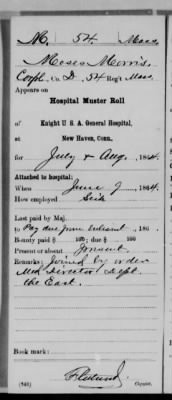 M. 54. Mass.
Moses Morris
Corpl, Co. D, 54 Reg't Mass.
Appears on
Hospital Muster Roll
of
Knight U. S. A. General Hospital,
at
New Haven, Conn.,
for July & Aug., 1864.
Attached to hospital:
When June 9, 1864.
How employed Sick
Last paid by Maj.
to Pay due from enlistment, 186 .
Bounty paid $ 100; due $ 100
Present or absent Present.
Remarks: Joined by order
Med Director Dept.
the East.
Book mark:
Copyist.